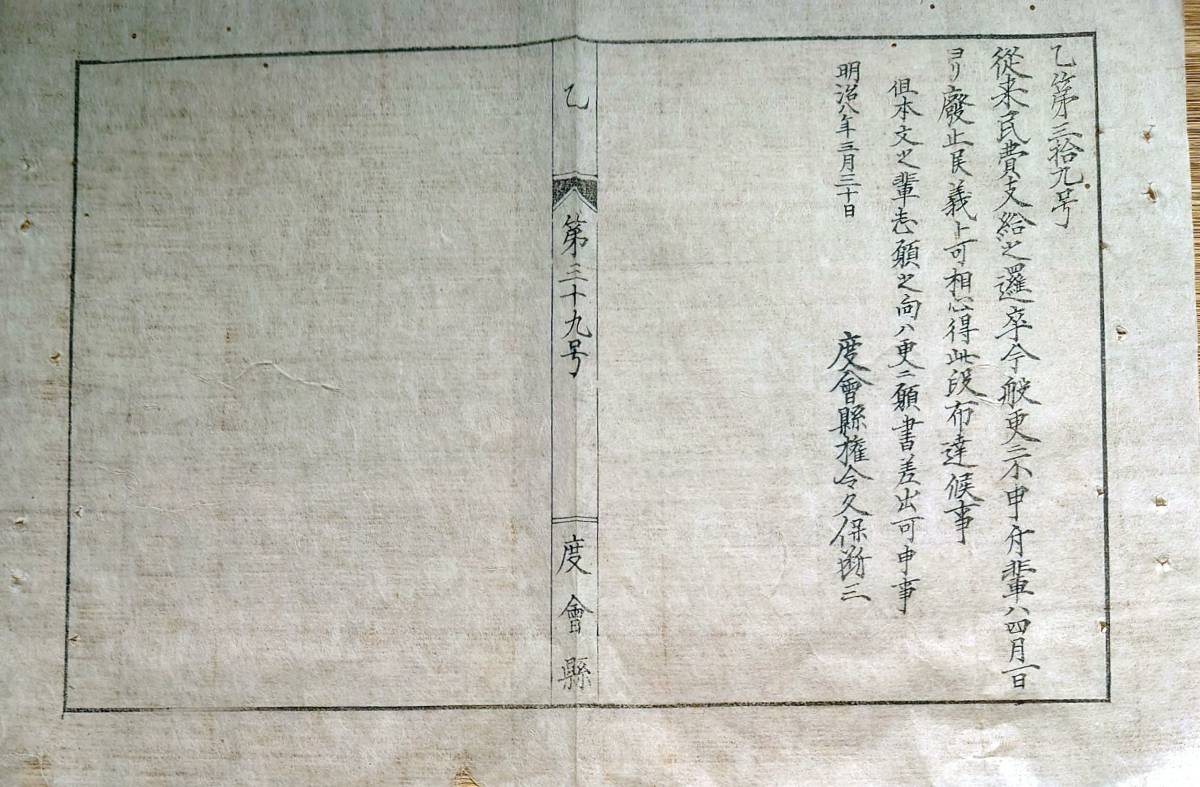 乙第三拾九号
従来民費支給之邏卒今般更ニ不申付輩ハ四月一日
ヨリ廢止民義ト可相心得此段布達候事
但本文之輩志願之向ハ更ニ願書差出可申事
明治八年三月三十日
度會縣権令久保断三
乙
第三十九号
度會縣